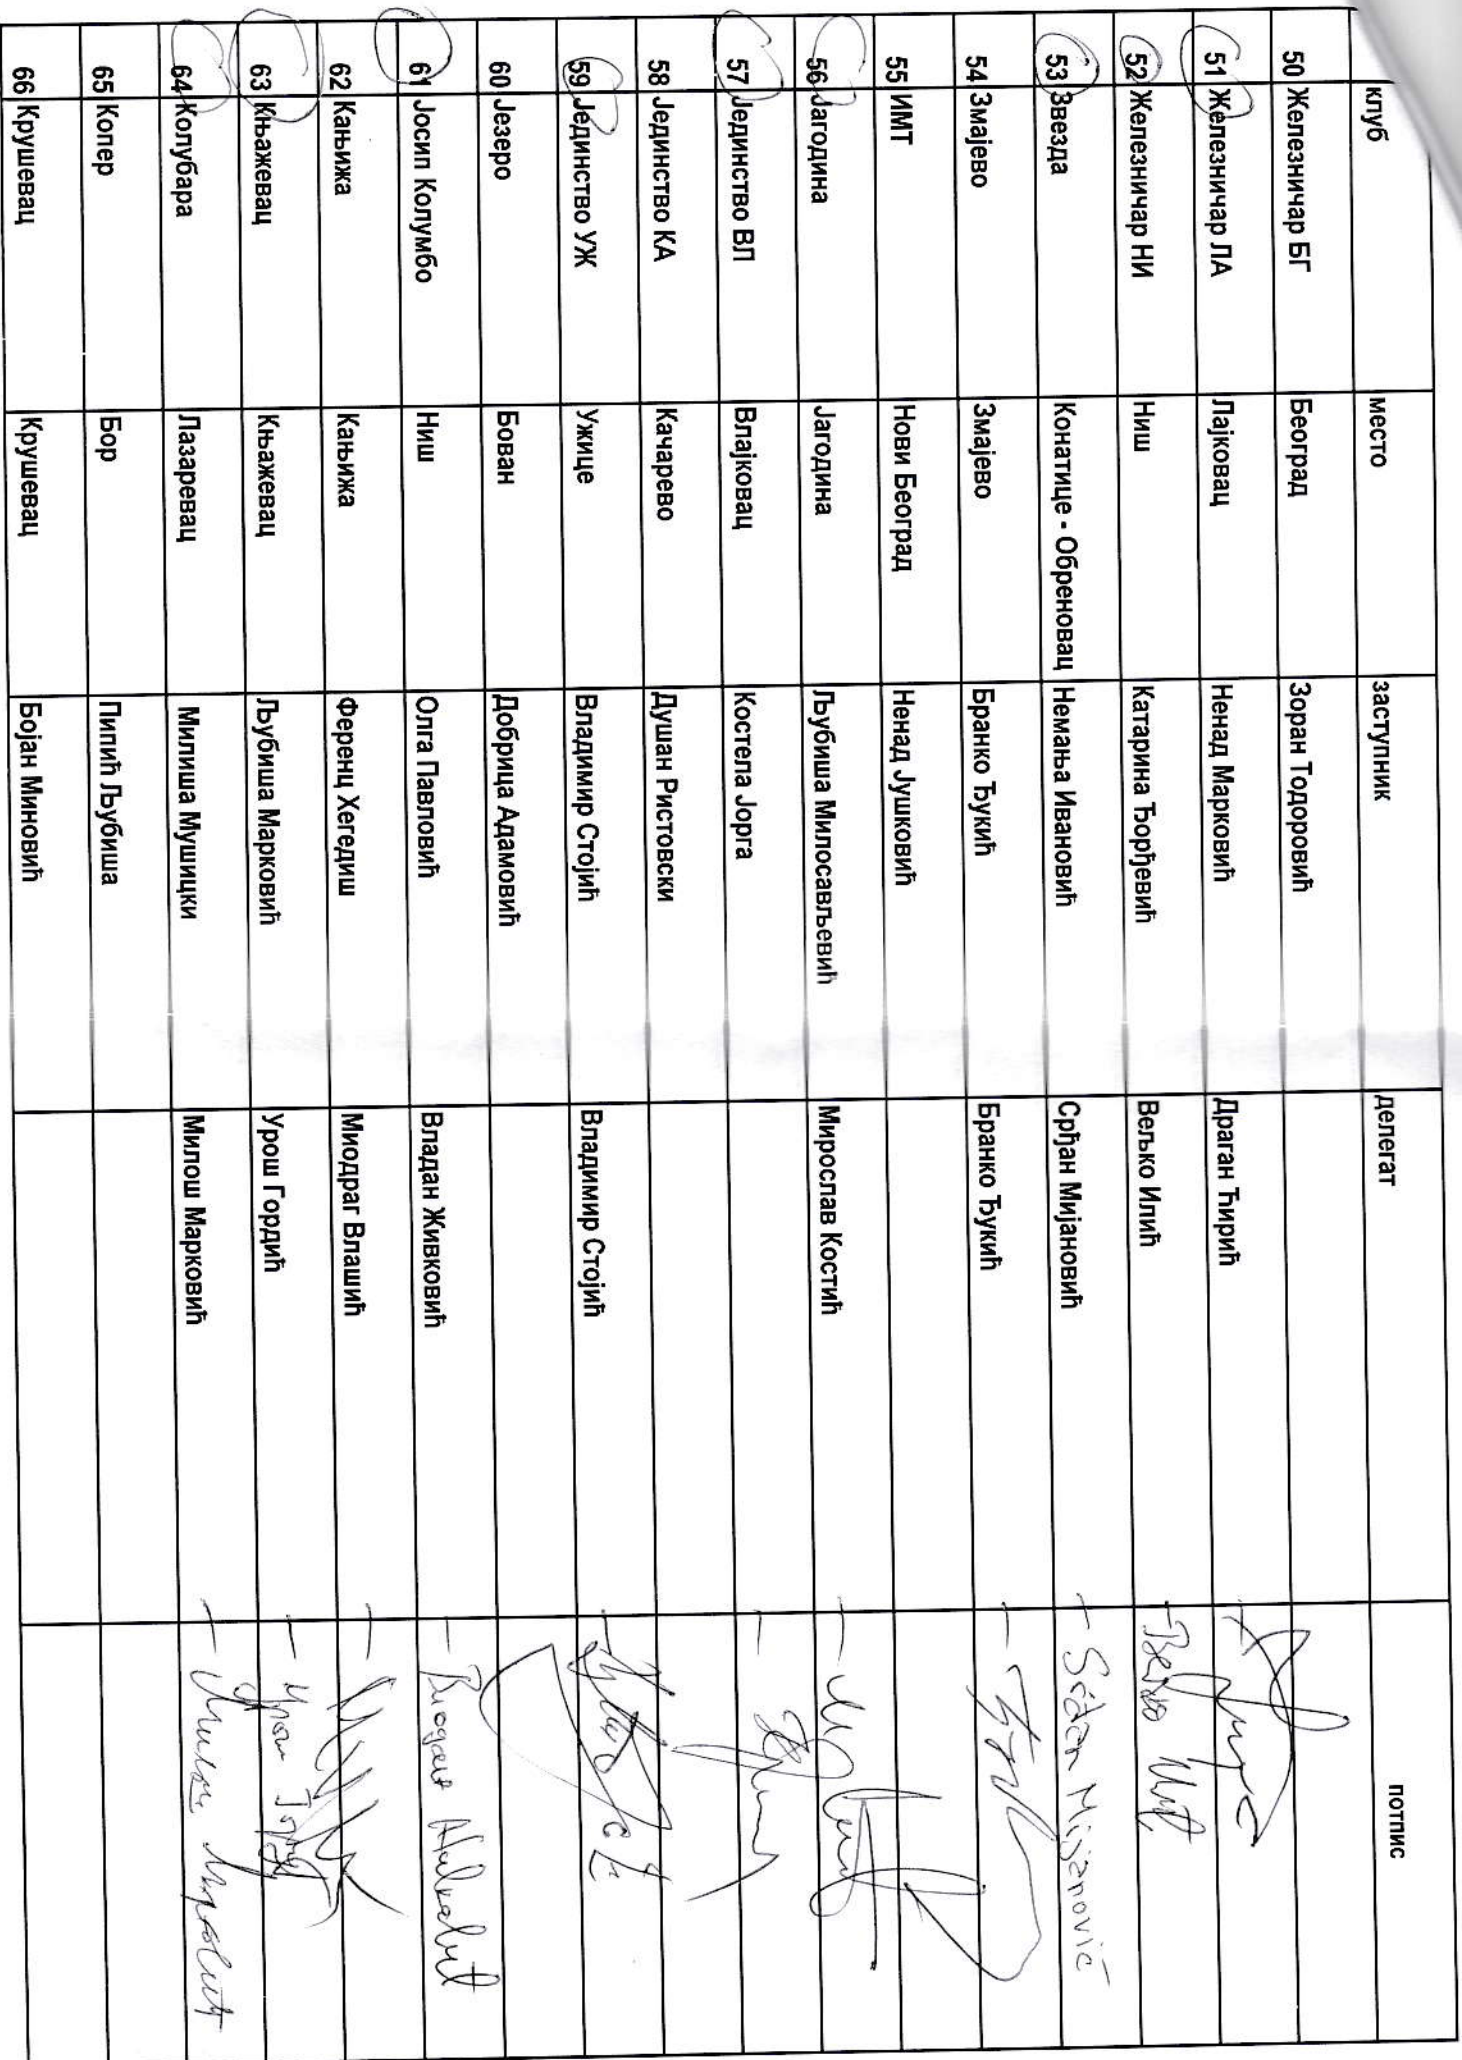 клуб место заступник делегат потпис
50 Железничар БГ Београд Зоран Тодоровић
51 Железничар ЛА Лајковац Ненад Марковић Драган Ћирић
52 Железничар НИ Ниш Катарина Ђорђевић Вељко Илић Вељко Илић
53 Звезда Конатице - Обреновац Немања Ивановић Срђан Мијановић Srđan Mijanović
54 Змајево Змајево Бранко Ђукић Бранко Ђукић
55 ИМТ Нови Београд Ненад Јушковић
56 Јагодина Јагодина Љубиша Милосављевић Мирослав Костић
57 Јединство ВЛ Влајковац Костела Јорга
58 Јединство КА Качарево Душан Ристовски
59 Јединство УЖ Ужице Владимир Стојић Владимир Стојић
60 Језеро Бован Добрица Адамовић
61 Јосип Колумбо Ниш Олга Павловић Владан Живковић Владан Живковић
62 Кањижа Кањижа Ференц Хегедиш Миодраг Влашић
63 Књажевац Књажевац Љубиша Марковић Урош Гордић Урош
64 Колубара Лазаревац Милиша Мушицки Милош Марковић Милош Марковић
65 Копер Бор Пипић Љубиша
66 Крушевац Крушевац Бојан Миновић